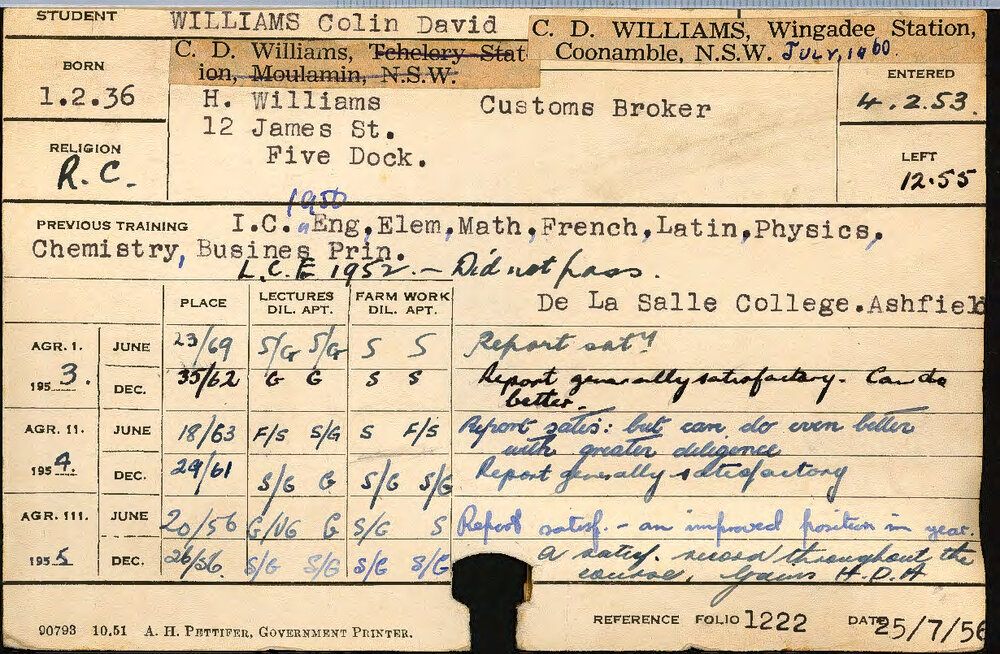 STUDENT WILLIAMS Colin David
C. D. WILLIAMS, Wingadee Station,
Coonamble, N.S.W. JULY, 1960.
C. D. Williams, Tchelery Stat
ion, Moulamin, N.S.W.
BORN
1.2.36
H. Williams Customs Broker
12 James St.
Five Dock.
ENTERED
4.2.53.
RELIGION
R.C.
LEFT
12.55
1950
PREVIOUS TRAINING I.C. Eng, Elem, Math, French, Latin, Physics,
Chemistry, Busines Prin.
L.C.E 1952. - Did not pass.
De La Salle College. Ashfield
PLACE LECTURES DIL. APT. FARM WORK DIL. APT.
AGR. I. 1953. JUNE 23/69 S/G S/G S S Report sat'y
DEC. 35/62 G G S S Report generally satisfactory. Can do
better.
AGR. II. 1954. JUNE 18/63 F/S S/G S F/S Report satis: but can do even better
with greater diligence
DEC. 29/61 S/G G S/G S/G Report generally satisfactory
AGR. III. 1955 JUNE 20/56 G/VG G S/G S Report satisf. - an improved position in year.
DEC. 26/56. S/G S/G S/G S/G A satisf. record throughout the
course. Gains H.D.A
90793 10.51 A. H. PETTIFER, GOVERNMENT PRINTER.
REFERENCE FOLIO 1222 DATE 25/7/56